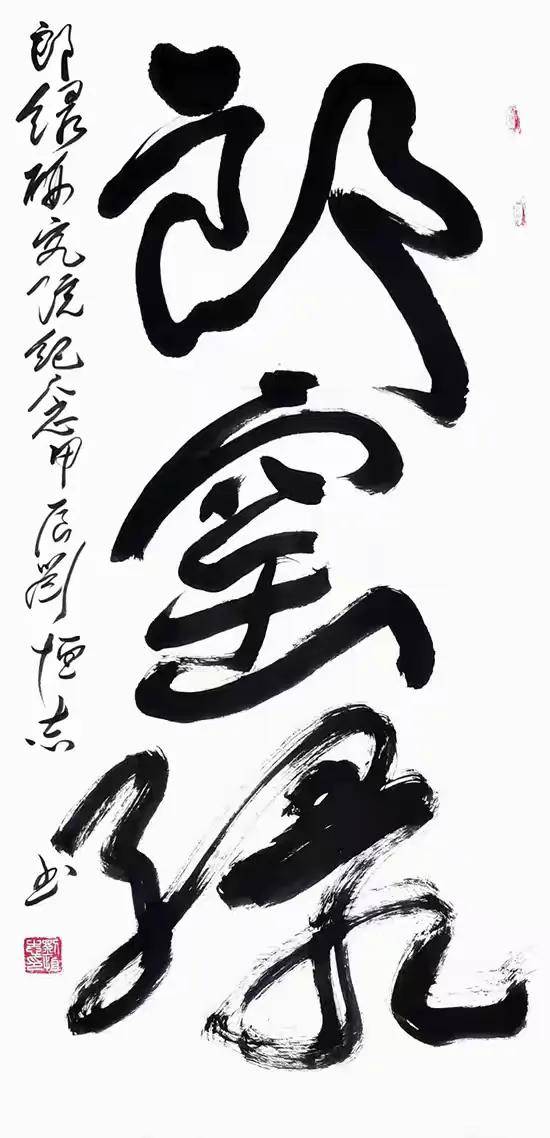 郎窑绿
郎绿研究院纪念甲辰劉恒志书